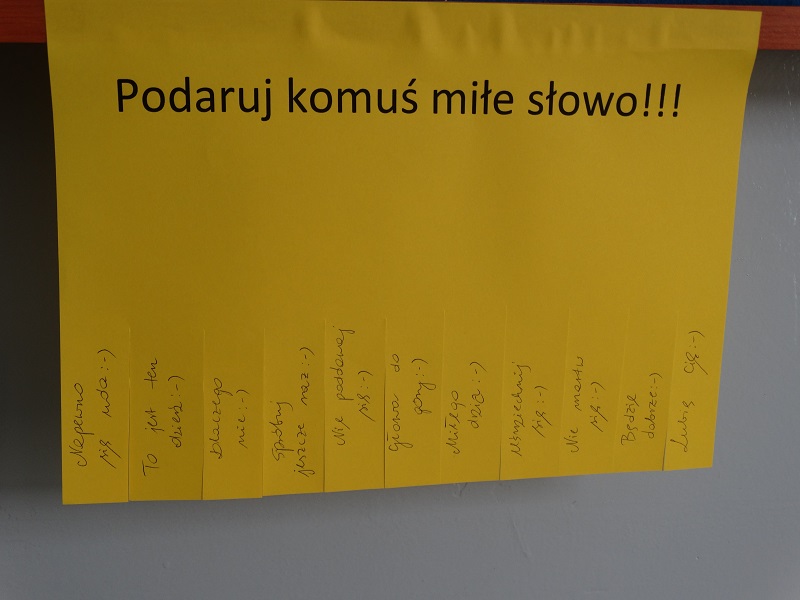 Podaruj komuś miłe słowo!!!
Napewno
się uda :-)
To jest ten
dzień :-)
Dlaczego
nie :-)
Spróbuj
jeszcze raz :-)
Nie poddawaj
się :-)
Głowa do
góry :-)
Miłego
dnia :-)
Uśmiechnij
się :-)
Nie martw
się :-)
Będzie
dobrze :-)
Lubię Cię :-)